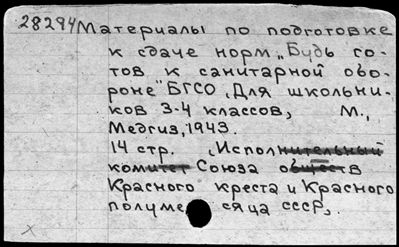 28294 Материалы по подготовке
к сдаче норм „Будь го-
тов к санитарной обо-
роне" БГСО. Для школьни-
ков 3-4 классов, М.,
Медгиз, 1943.
14 стр. (Исполнительный
комитет Союза обществ
Красного креста и Красного
полумесяца СССР).